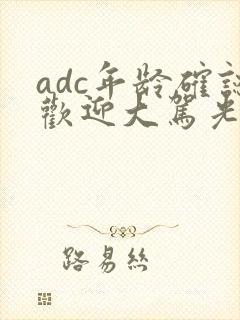 adc年龄確認
歡迎大駕光
路易絲